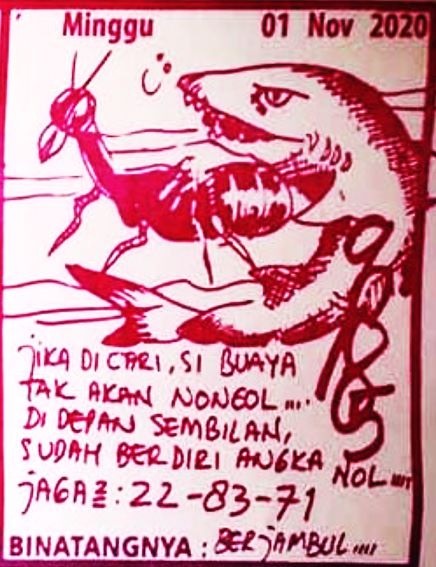 Minggu 01 Nov 2020
JIKA DI CARI, SI BUAYA
TAK AKAN NONGOL....
DI DEPAN SEMBILAN,
SUDAH BERDIRI ANGKA NOL....
JAGA2 : 22-83-71
BINATANGNYA : BERJAMBUL....